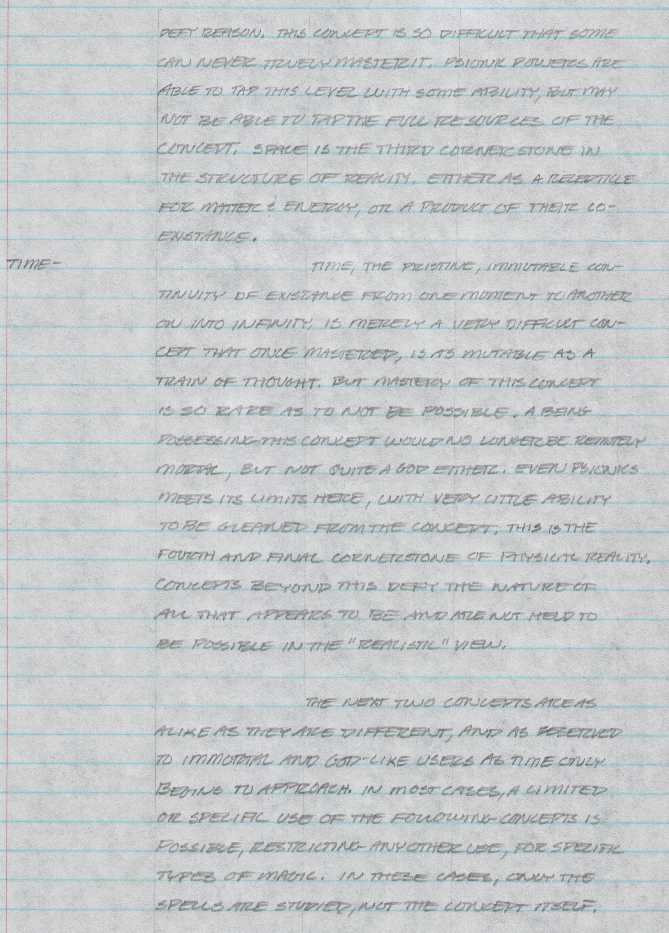 DEFY REASON. THIS CONCEPT IS SO DIFFICULT THAT SOME
CAN NEVER TRUELY MASTER IT. PSIONIC POWERS ARE
ABLE TO TAP THIS LEVEL WITH SOME ABILITY, BUT MAY
NOT BE ABLE TO TAP THE FULL RESOURCES OF THE
CONCEPT. SPACE IS THE THIRD CORNERSTONE IN
THE STRUCTURE OF REALITY. EITHER AS A RECEPTICLE
FOR MATTER & ENERGY, OR A PRODUCT OF THEIR CO-
EXISTANCE.
TIME- TIME, THE PRISTINE, IMMUTABLE CON-
TINUITY OF EXISTANCE FROM ONE MOMENT TO ANOTHER
ON INTO INFINITY, IS MERELY A VERY DIFFICULT CON-
CEPT THAT ONCE MASTERED, IS AS MUTABLE AS A
TRAIN OF THOUGHT. BUT MASTERY OF THIS CONCEPT
IS SO RARE AS TO NOT BE POSSIBLE. A BEING
POSSESSING THIS CONCEPT WOULD NO LONGER BE REMOTELY
MORTAL, BUT NOT QUITE A GOD EITHER. EVEN PSIONICS
MEETS ITS LIMITS HERE, WITH VERY LITTLE ABILITY
TO BE GLEANED FROM THE CONCEPT. THIS IS THE
FOURTH AND FINAL CORNERSTONE OF PHYSICAL REALITY.
CONCEPTS BEYOND THIS DEFY THE NATURE OF
ALL THAT APPEARS TO BE AND ARE NOT HELD TO
BE POSSIBLE IN THE "REALISTIC" VIEW.
THE NEXT TWO CONCEPTS ARE AS
ALIKE AS THEY ARE DIFFERENT, AND AS RESERVED
TO IMMORTAL AND GOD-LIKE USERS AS TIME ONLY
BEGINS TO APPROACH. IN MOST CASES, A LIMITED
OR SPECIFIC USE OF THE FOLLOWING CONCEPTS IS
POSSIBLE, RESTRICTING ANY OTHER USE, FOR SPECIFIC
TYPES OF MAGIC. IN THESE CASES, ONLY THE
SPELLS ARE STUDIED, NOT THE CONCEPT ITSELF.